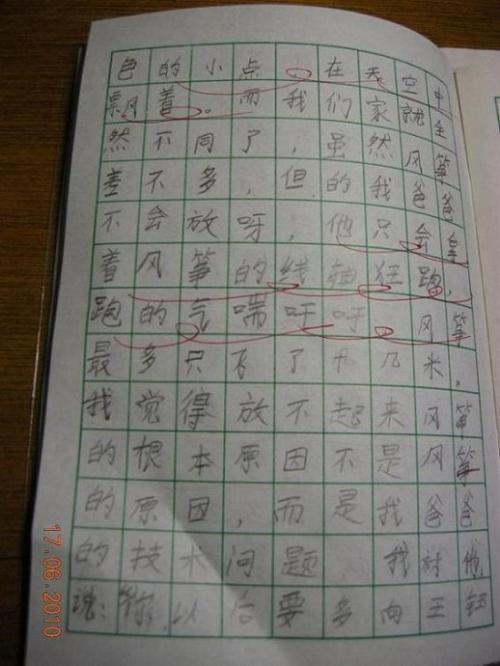 色的小点,在天空中
飘着。而我们家就全
然不同了,虽然风筝
差不多,但的我爸爸
不会放呀,他只会拿
着风筝的线轴狂跑,
跑的气喘吁吁,风筝
最多只飞了十几米,
我觉得放不起来风筝
的根本原因不是风筝
的原因,而是我爸爸
的技术问题,我对他
说:“你以后要多向王
17.06.2010